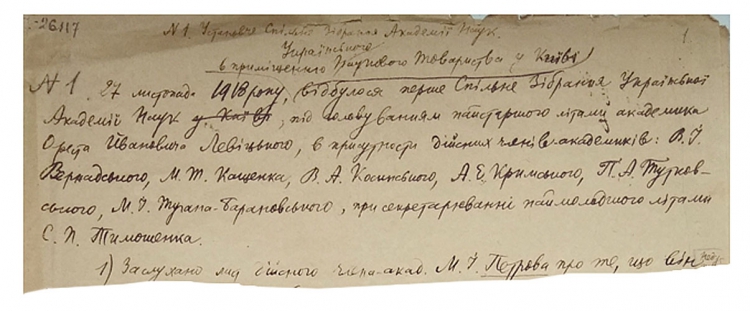 -26117
№ 1. Установче Спільне Зібрання Академії Наук. 1
Українського
в приміщенню Наукового Товариства у Київі
№ 1 27 листопада 1918 року, відбулося перше Спільне Зібрання Української
Академії Наук у Київі, під головуванням найстаршого літами академика
Ореста Йвановича Левіцького, в присутности дійсних членів-академиків: В. І.
Вернадського, М. Т. Кащенка, В. А. Косинського, А. Е. Кримського, П. А. Тутков-
ського, М. І. Тугана-Барановського, при секретарюванні наймолодшого літами
С. П. Тимошенка.
1) Заслухано дійсного члена-акад. М. І. Петрова про те, що він